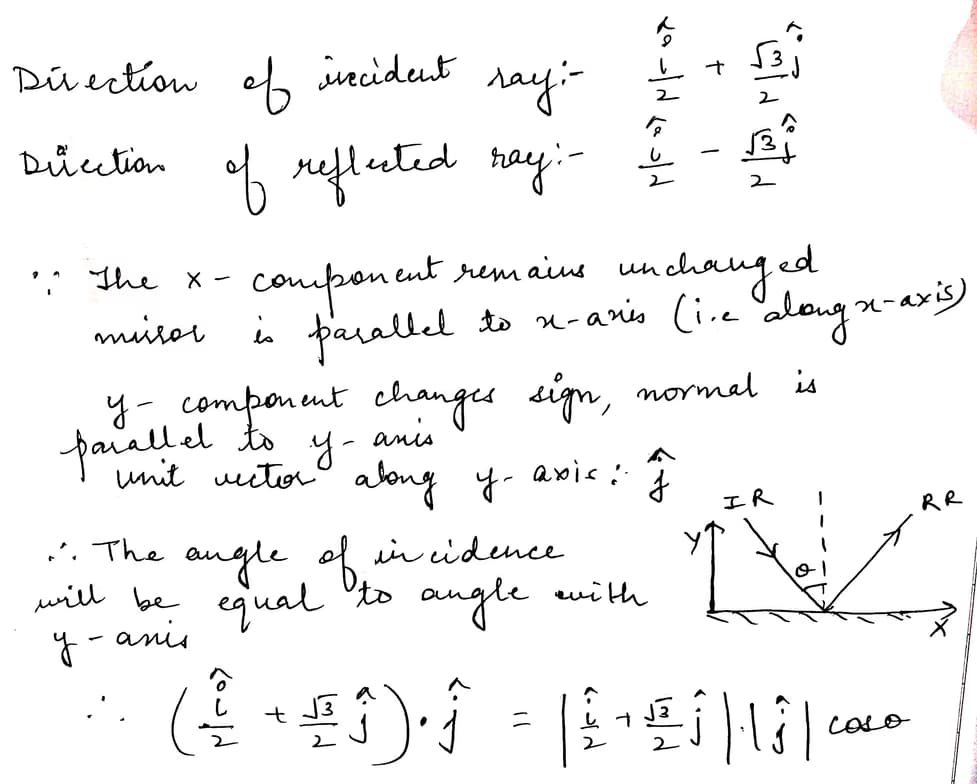 Direction of incident ray:- î/2 + √3/2 ĵ
Direction of reflected ray:- î/2 - √3/2 ĵ
∵ The x - component remains unchanged
mirror is parallel to x-axis (i.e along x-axis)
y - component changes sign, normal is
parallel to y - axis
unit vector along y - axis : ĵ
IR RR
Y θ X
∴ The angle of incidence
will be equal to angle with
y - axis
∴ (î/2 + √3/2 ĵ) · ĵ = |î/2 + √3/2 ĵ| · |ĵ| cosθ